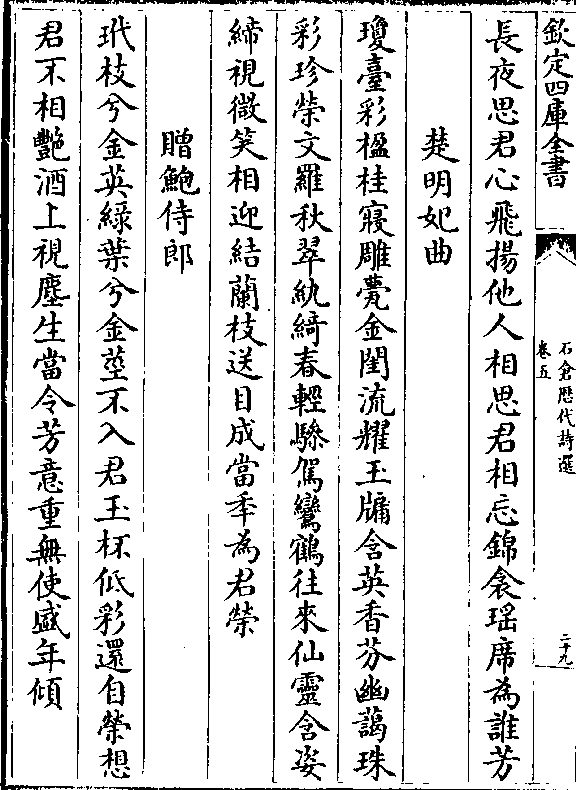 欽定四庫全書
石倉歷代詩選
卷五
二十九
長夜思君心飛揚他人相思君相忘錦衾瑶席為誰芳
楚明妃曲
瓊臺彩楹桂寢雕甍金閨流耀玉牖含英香芬幽藹珠
彩珍榮文羅秋翠紈綺春輕驂駕鸞鶴往來仙靈含姿
締視微笑相迎結蘭枝送目成當年為君榮
贈鮑侍郎
玳枝兮金英綠葉兮金莖不入君玉杯低彩還自榮想
君不相艷酒上視塵生當令芳意重無使盛年傾